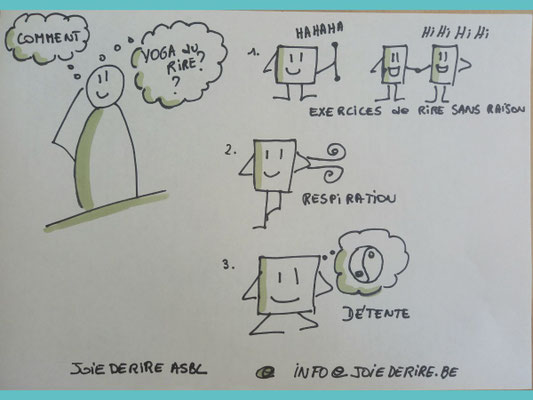 COMMENT
YOGA du
RIRE?
?
1.
HAHAHA
HiHi Hi Hi
EXERCICES de RIRE SANS RAISON
2.
RESPIRATION
3.
DÉTENTE
JOIE DE RIRE ASBL
@ INFO@JOIEDERIRE.BE